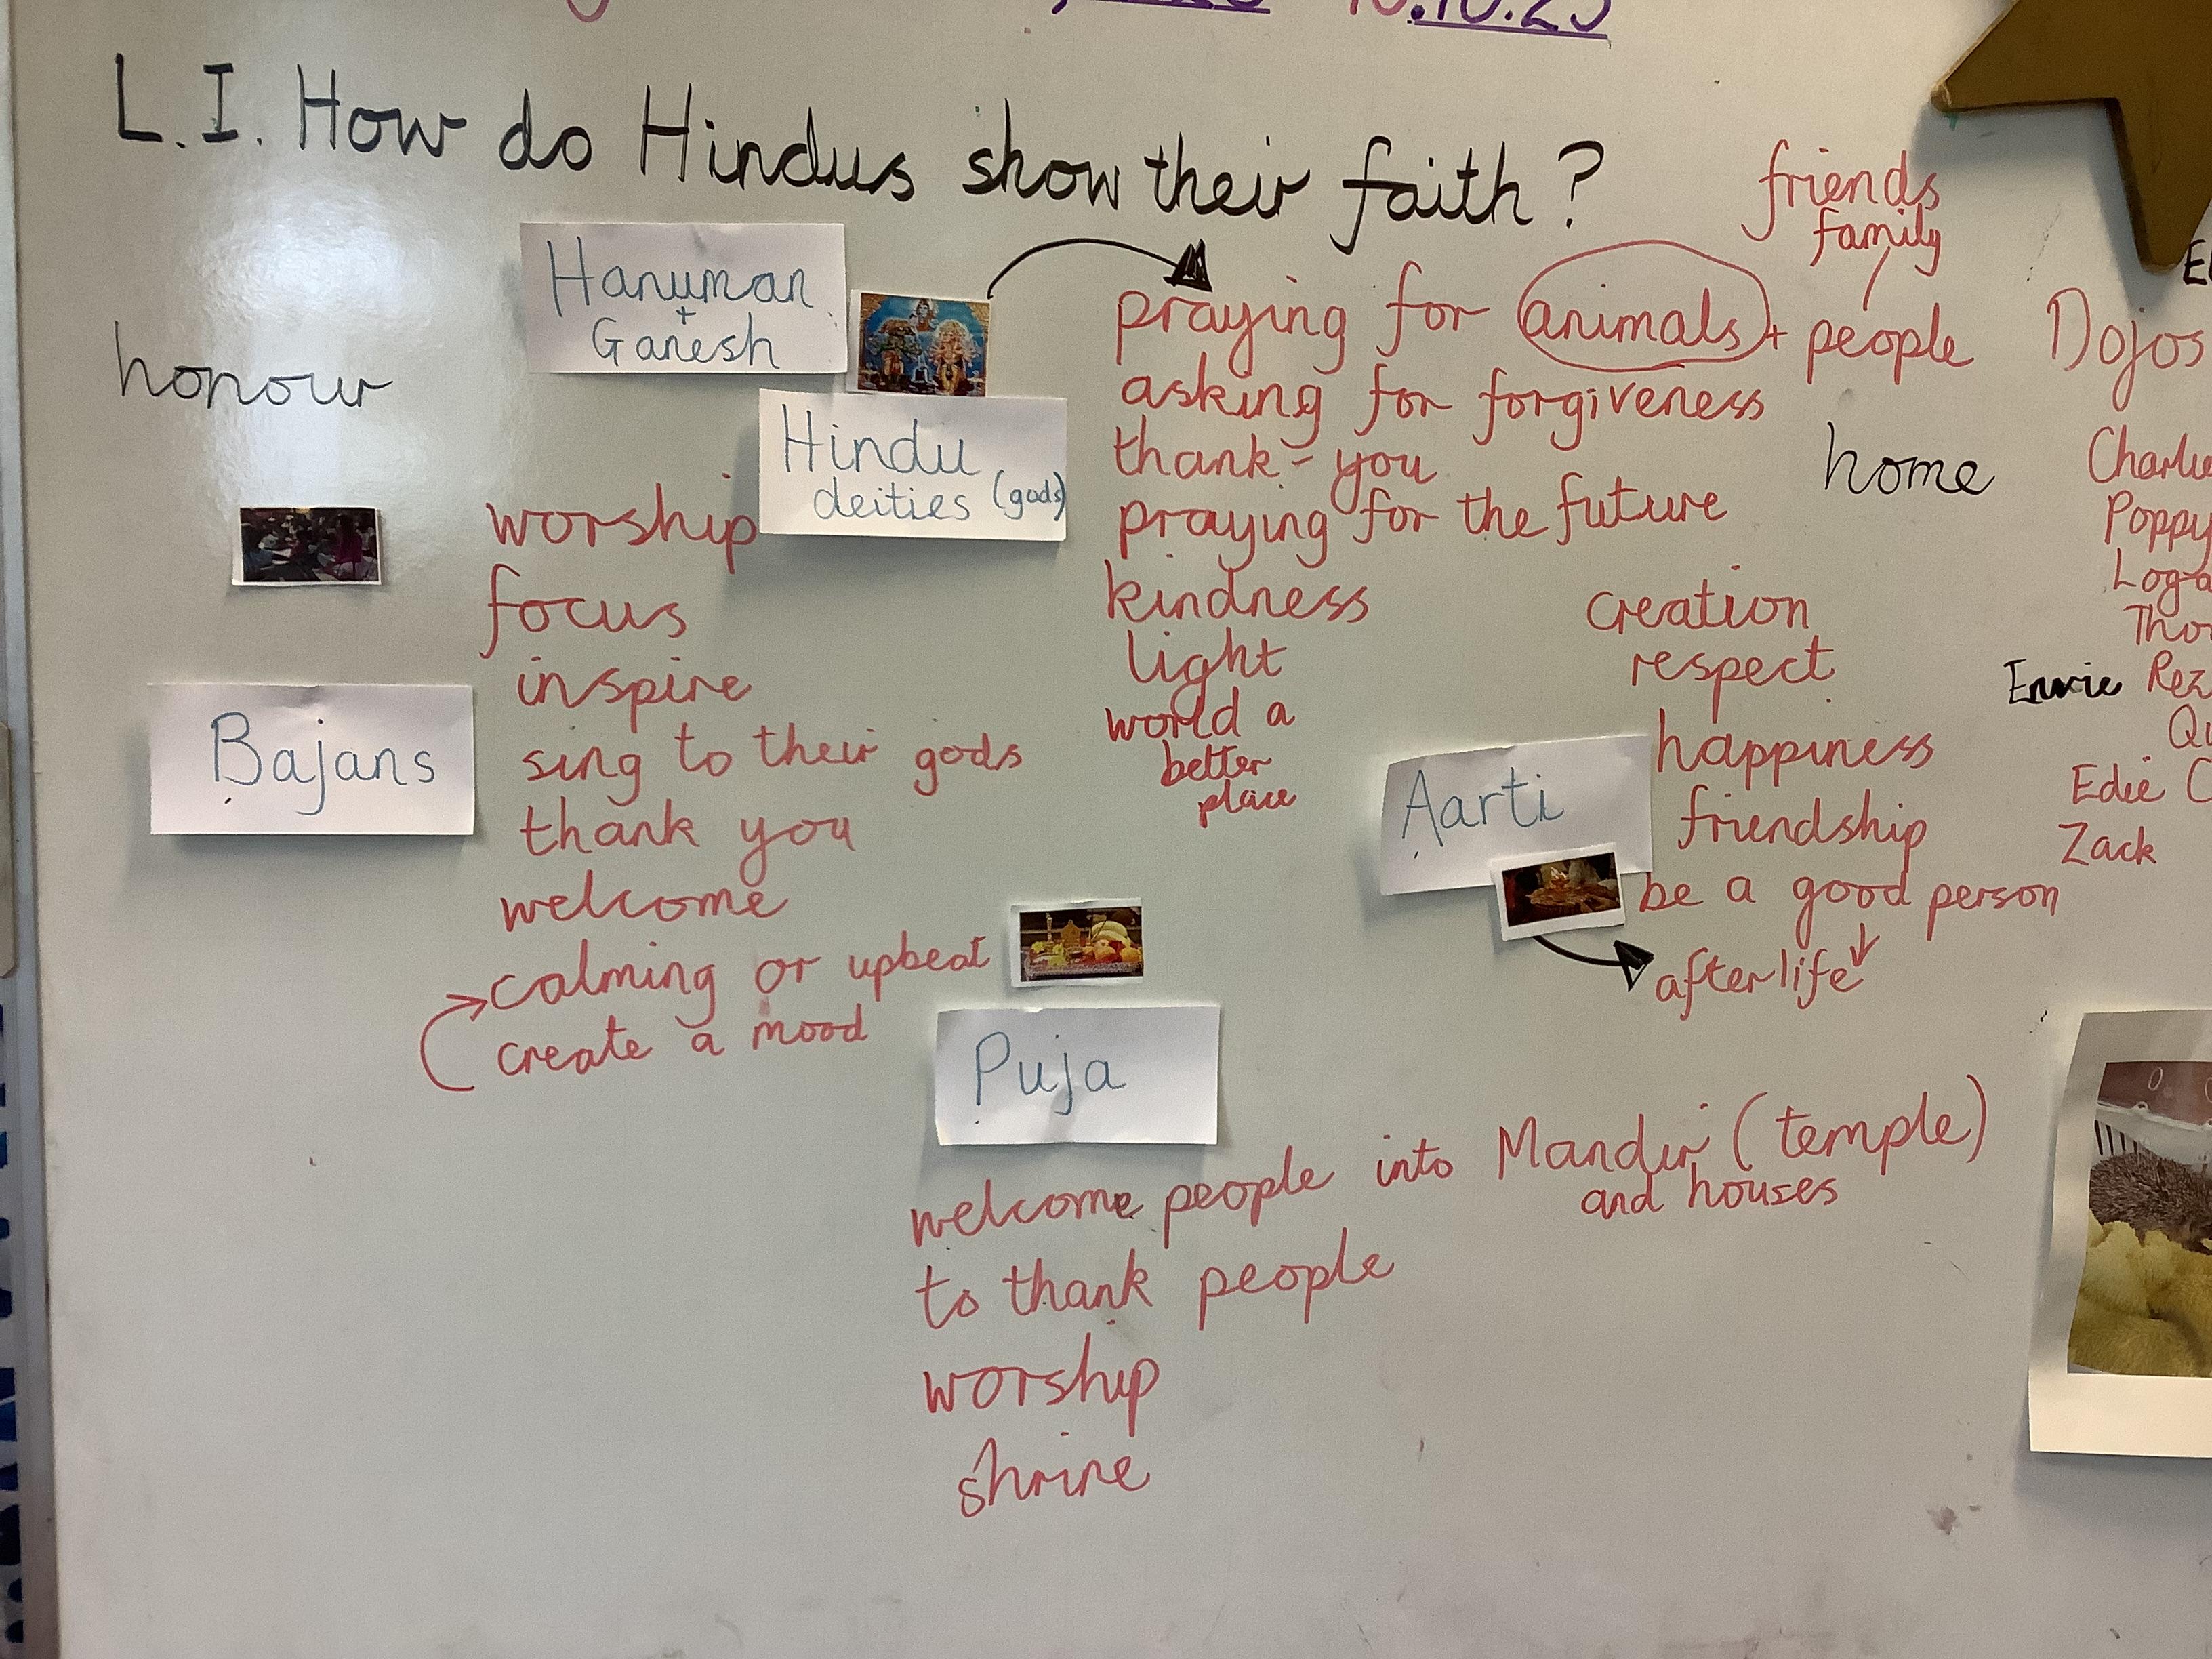 10.10.25
L.I. How do Hindus show their faith?
Hanuman
+
Ganesh
Hindu
deities (gods)
honour
friends
family
praying for animals + people
asking for forgiveness
thank-you
praying for the future
kindness
light
world a
better
place
home
worship
focus
inspire
sing to their gods
thank you
welcome
calming or upbeat
create a mood
Bajans
creation
respect
happiness
friendship
be a good person
afterlife
Aarti
Puja
welcome people into Mandir (temple)
and houses
to thank people
worship
shrine
Dojos
Poppy
Edie
Zack